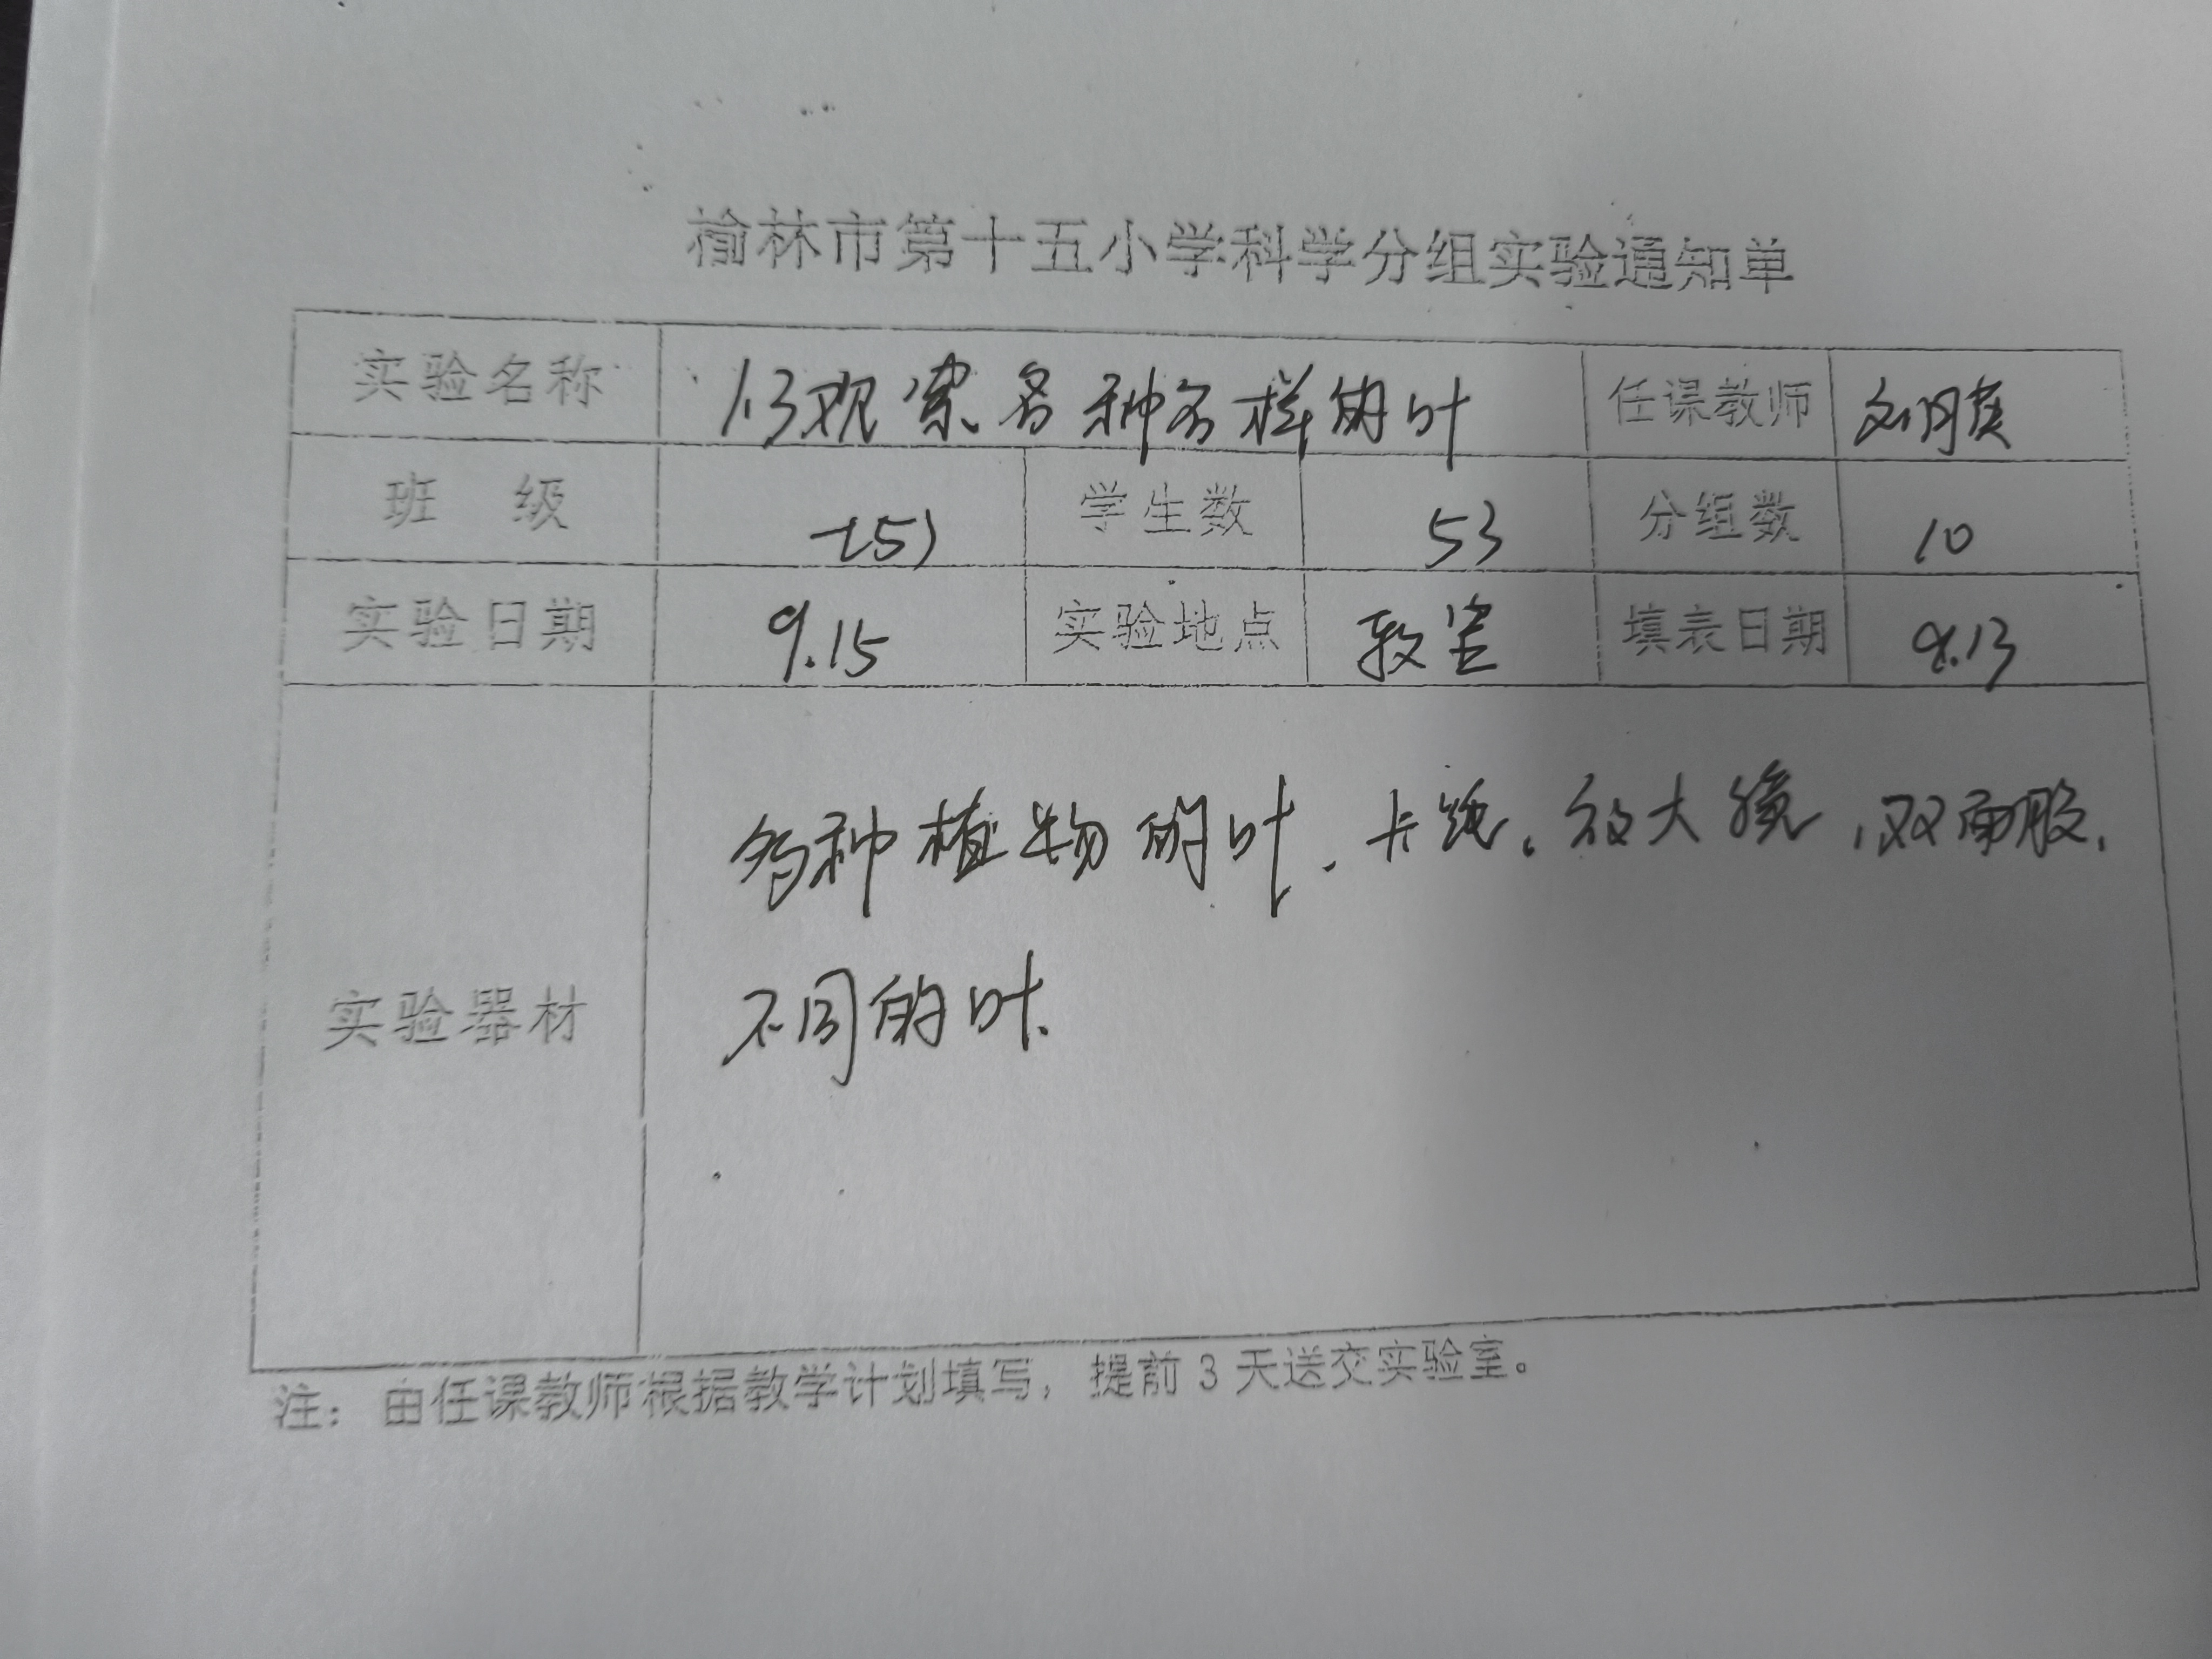 榆林市第十五小学科学分组实验通知单
实验名称 1.3观察各种各样的叶 任课教师
班 级 一(5) 学生数 53 分组数 10
实验日期 9.15 实验地点 教室 填表日期 9.13
多种植物的叶、卡纸、放大镜、双面胶、
实验器材 不同的叶、
注：由任课教师根据教学计划填写，提前3天送交实验室。